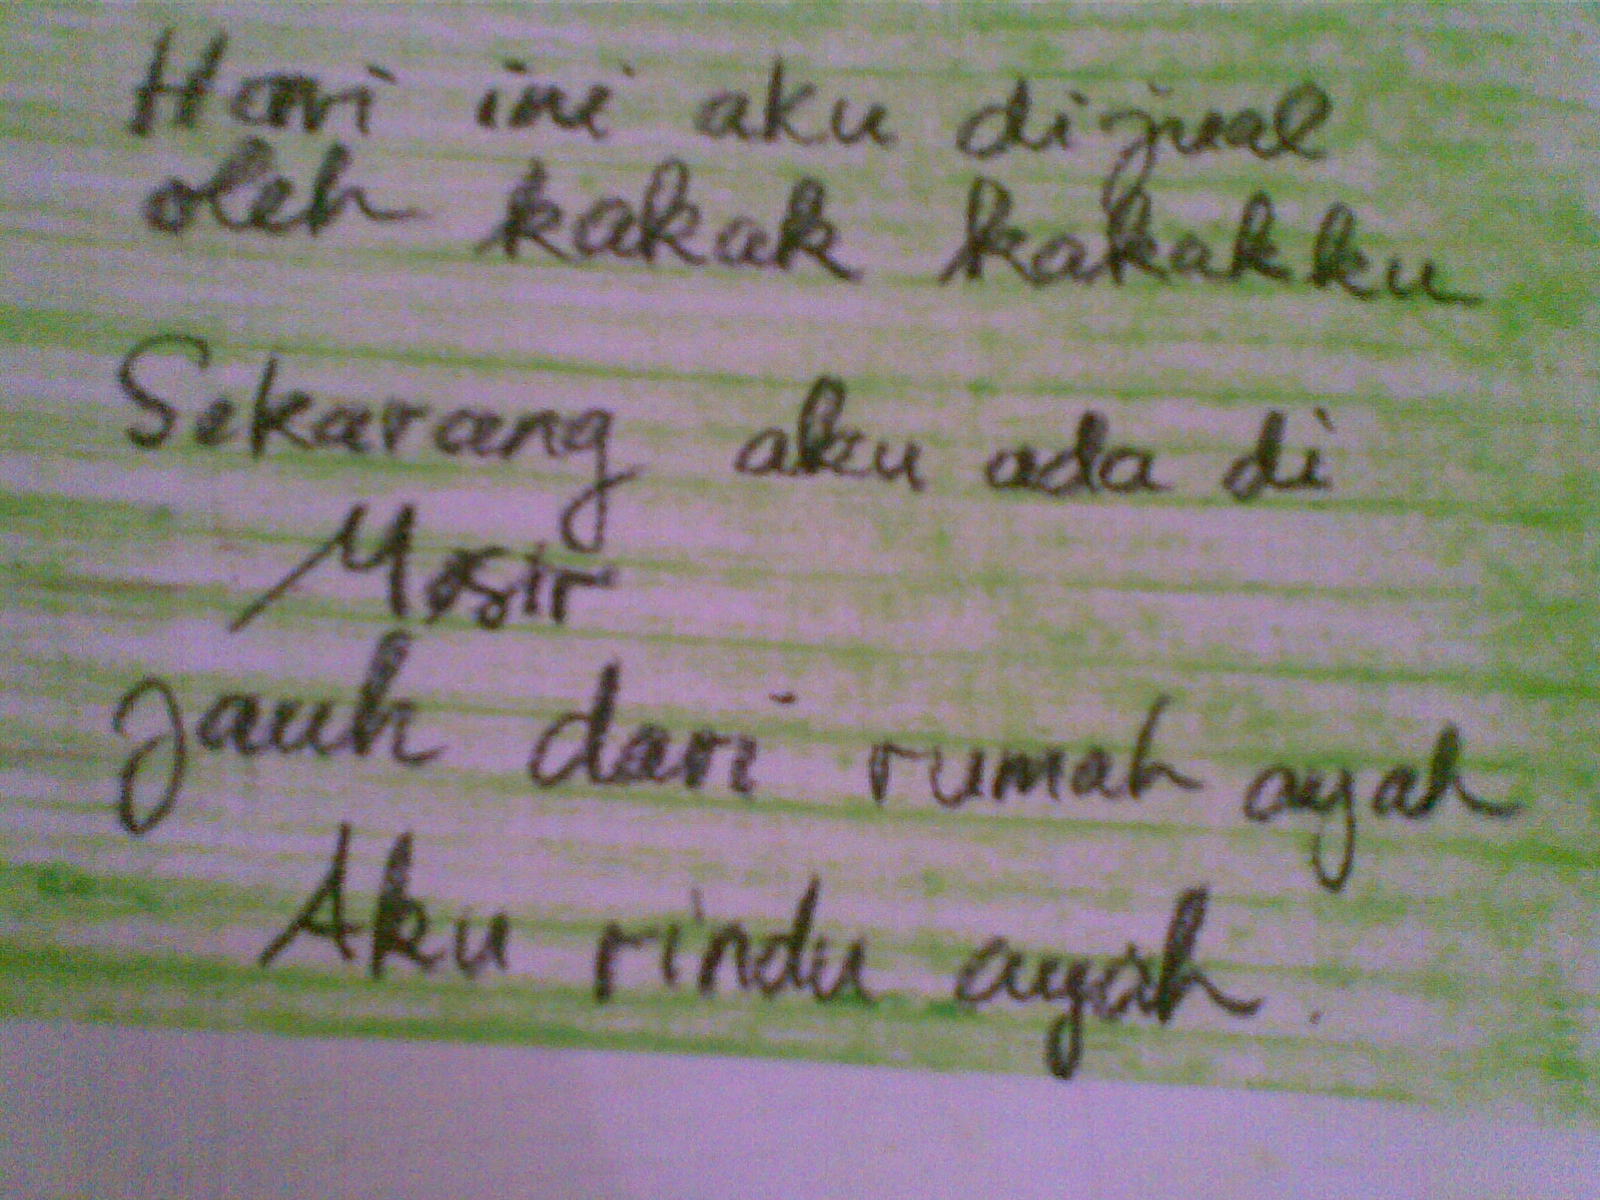 Hari ini aku dijual
oleh kakak kakakku
Sekarang aku ada di
Mesir
Jauh dari rumah ayah
Aku rindu ayah.